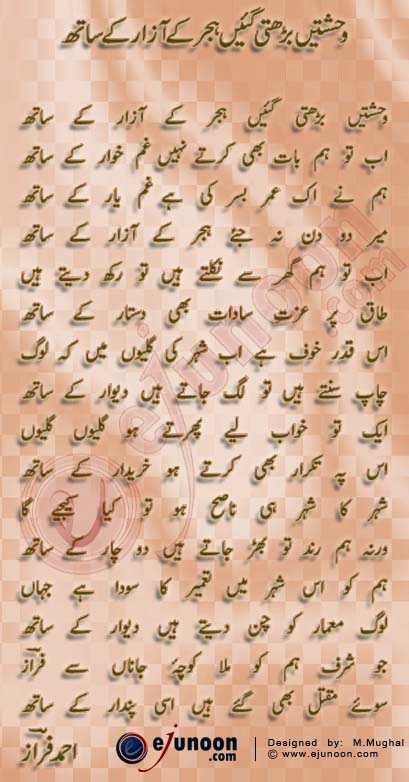 وحشتیں بڑھتی گئیں ہجر کے آزار کے ساتھ
وحشتیں بڑھتی گئیں ہجر کے آزار کے ساتھ
اب تو ہم بات بھی کرتے نہیں غم خوار کے ساتھ
ہم نے اک عمر بسر کی ہے غم یار کے ساتھ
میر دو دن نہ جئے ہجر کے آزار کے ساتھ
اب تو ہم گھر سے نکلتے ہیں تو رکھ دیتے ہیں
طاق پر عزت سادات بھی دستار کے ساتھ
اس قدر خوف ہے اب شہر کی گلیوں میں کہ لوگ
چاپ سنتے ہیں تو لگ جاتے ہیں دیوار کے ساتھ
ایک تو خواب لیے پھرتے ہو گلیوں گلیوں
اس پہ تکرار بھی کرتے ہو خریدار کے ساتھ
شہر کا شہر ہی ناصح ہو تو کیا کیجیے گا
ورنہ ہم رند تو بھڑ جاتے ہیں دو چار کے ساتھ
ہم کو اس شہر میں تعمیر کا سودا ہے جہاں
لوگ معمار کو چن دیتے ہیں دیوار کے ساتھ
جو شرف ہم کو ملا کوچۂ جاناں سے فراز
سوئے مقتل بھی گئے ہیں اسی پندار کے ساتھ
احمد فراز
ejunoon.com
Designed by: M.Mughal
© www.ejunoon.com
ejunoon.com